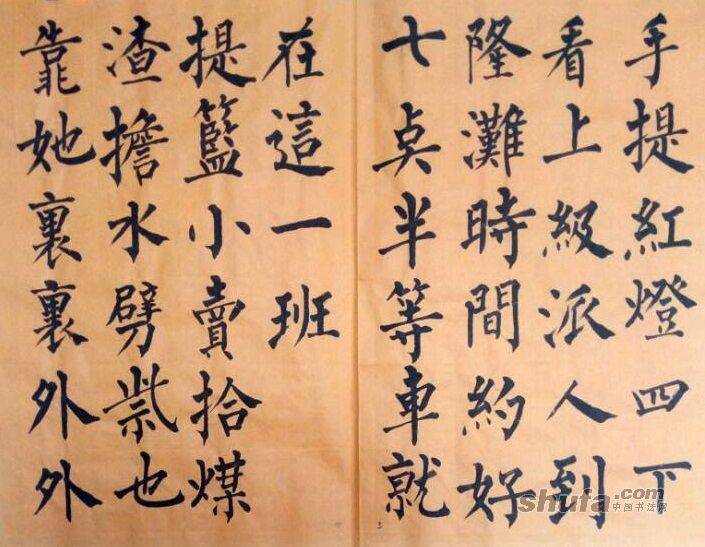 手提紅燈四下
看上級派人到
隆灘時間約好
七奌半等車就
在這一班
提籃小賣拾煤
渣擔水劈柴也
靠她裏裏外外
shufa.com
中国书法网